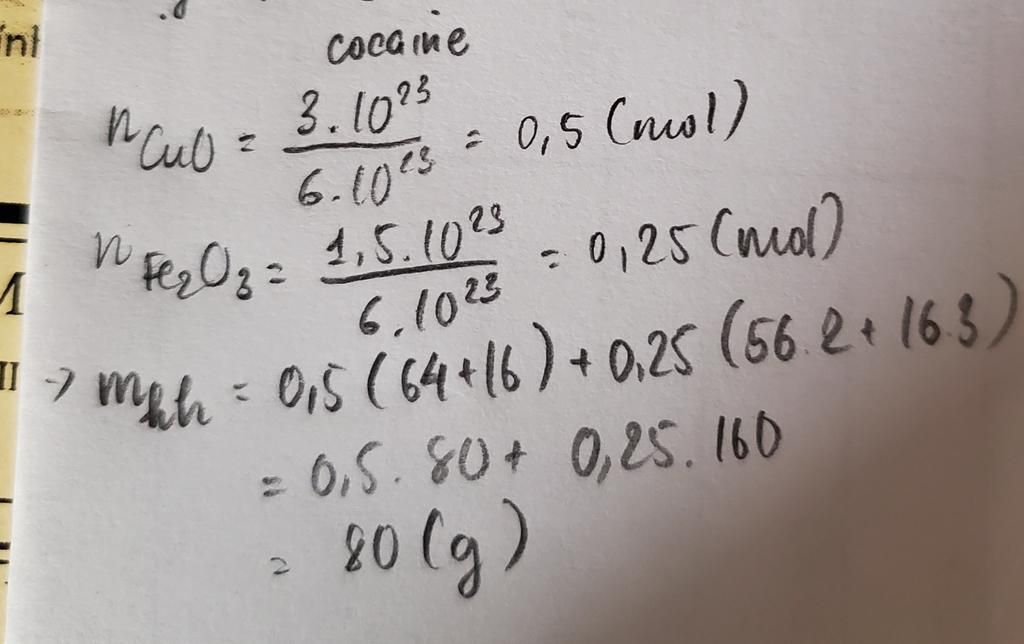 cocaine
n CuO = 3.10²³ / 6.10²³ = 0,5 (mol)
n Fe₂O₃ = 1,5.10²³ / 6.10²³ = 0,25 (mol)
→ mhh = 0,5 (64+16) + 0,25 (56.2 + 16.3)
= 0,5. 80 + 0,25. 160
= 80 (g)